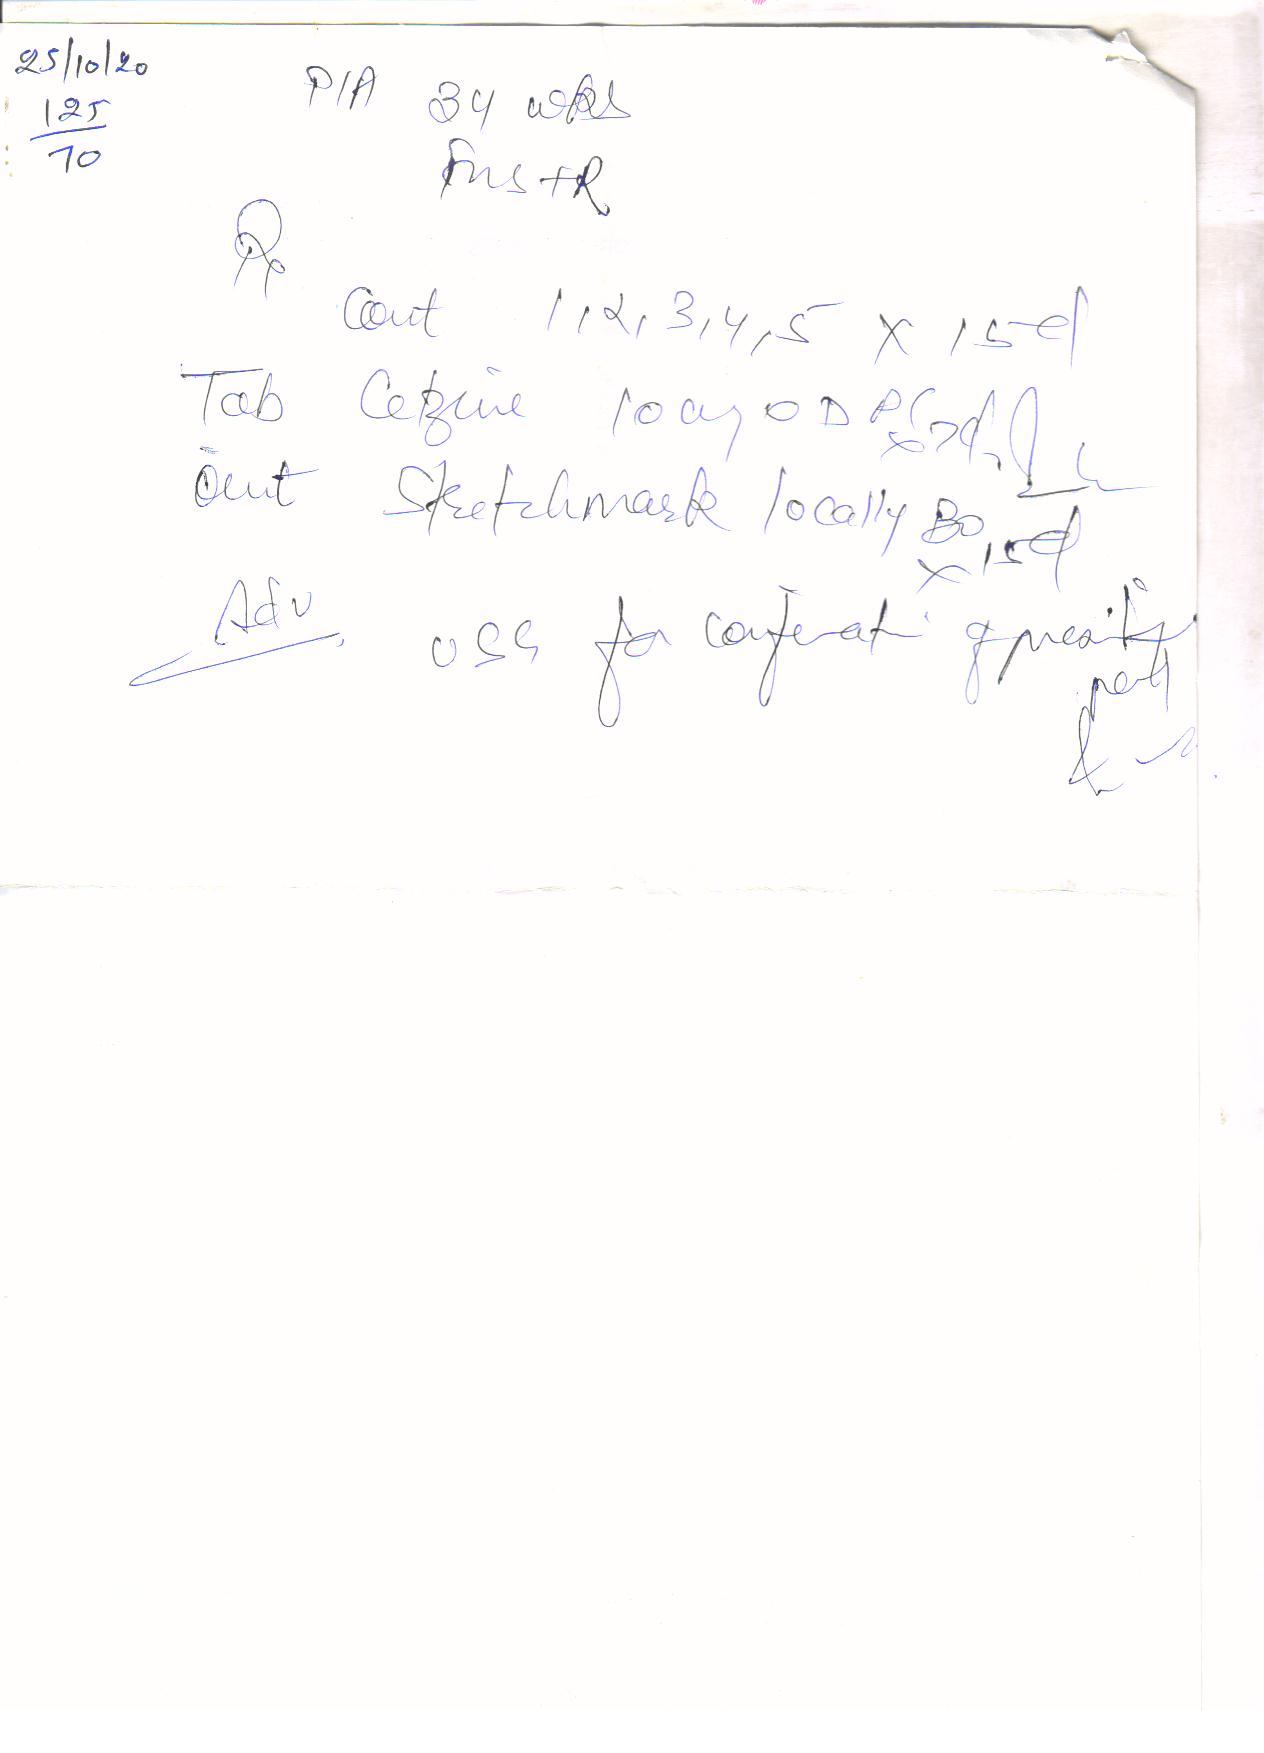 25/10/20
125
70
P/A 34 wks
FHS +R
Rx
Cont 1,2,3,4,5 x 15d
Tab Cetzine 10mg OD x 7d
Oint Stretchmark locally BD x 15d
Adv
USG for confirmati of presenting part